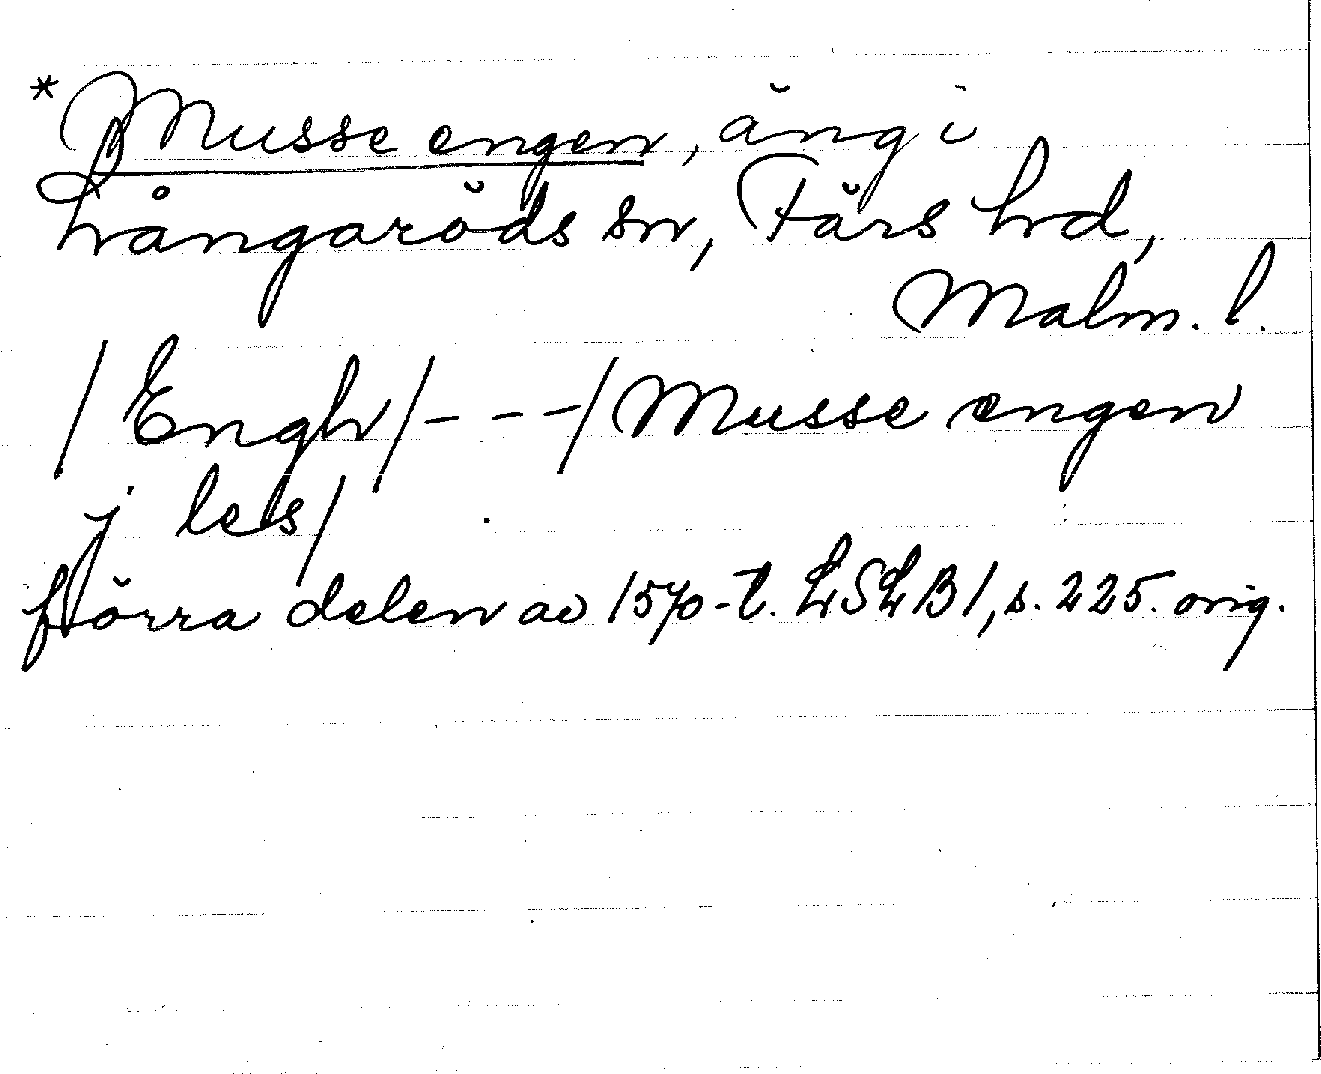 * Musse engen, äng i
Långaröds sn, Färs hd,
Malm. l.
/Engh/ - - - /Musse engen
j lels/
förra delen av 1570-t. LSLB1, s. 225. orig.